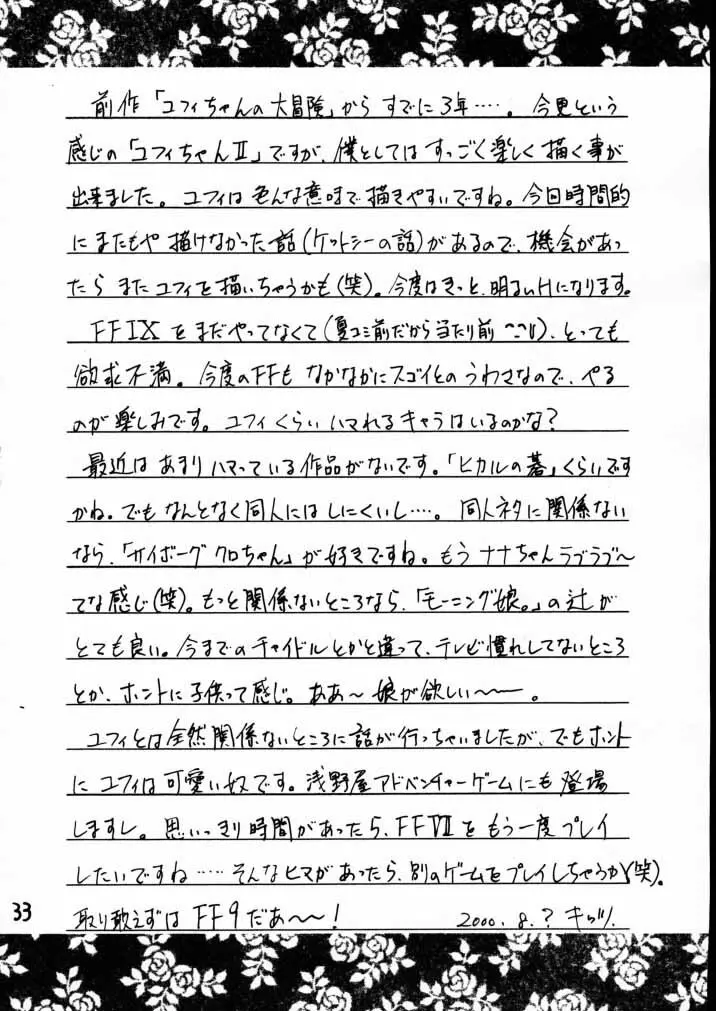 前作「ユフィちゃんの大冒険」からすでに3年‥‥。今更という
感じの「ユフィちゃんII」ですが、僕としてはすっごく楽しく描く事が
出来ました。ユフィは色んな意味で描きやすいですね。今回時間的
にまたもや描けなかった話(ケットシーの話)があるので、機会があっ
たらまたユフィを描いちゃうかも(笑)。今度はきっと、明るいHになります。
FFIXをまだやってなくて(夏コミ前だから当たり前^^;)、とっても
欲求不満。今度のFFもなかなかにスゴイとのうわさなので、やる
のが楽しみです。ユフィくらいハマれるキャラはいるのかな?
最近はあまりハマっている作品がないです。「ヒカルの碁」くらいです
かね。でもなんとなく同人にはしにくいし‥‥。同人ネタに関係ない
なら、「サイボーグクロちゃん」が好きですね。もうナナちゃんラブラブ〜
てな感じ(笑)。もっと関係ないところなら、「モーニング娘。」の辻が
とても良い。今までのチャイドルとかと違って、テレビ慣れしてないところ
とか、ホントに子供って感じ。ああ〜娘が欲しい〜〜。
ユフィとは全然関係ないところに話が行っちゃいましたが、でもホント
にユフィは可愛い奴です。浅野屋アドベンチャーゲームにも登場
しますし。思いっきり時間があったら、FFVIIをもう一度プレイ
したいですね‥‥そんなヒマがあったら、別のゲームをプレイしちゃうか(笑)。
取り敢えずはFF9だぁ〜〜!
2000.8.?
33